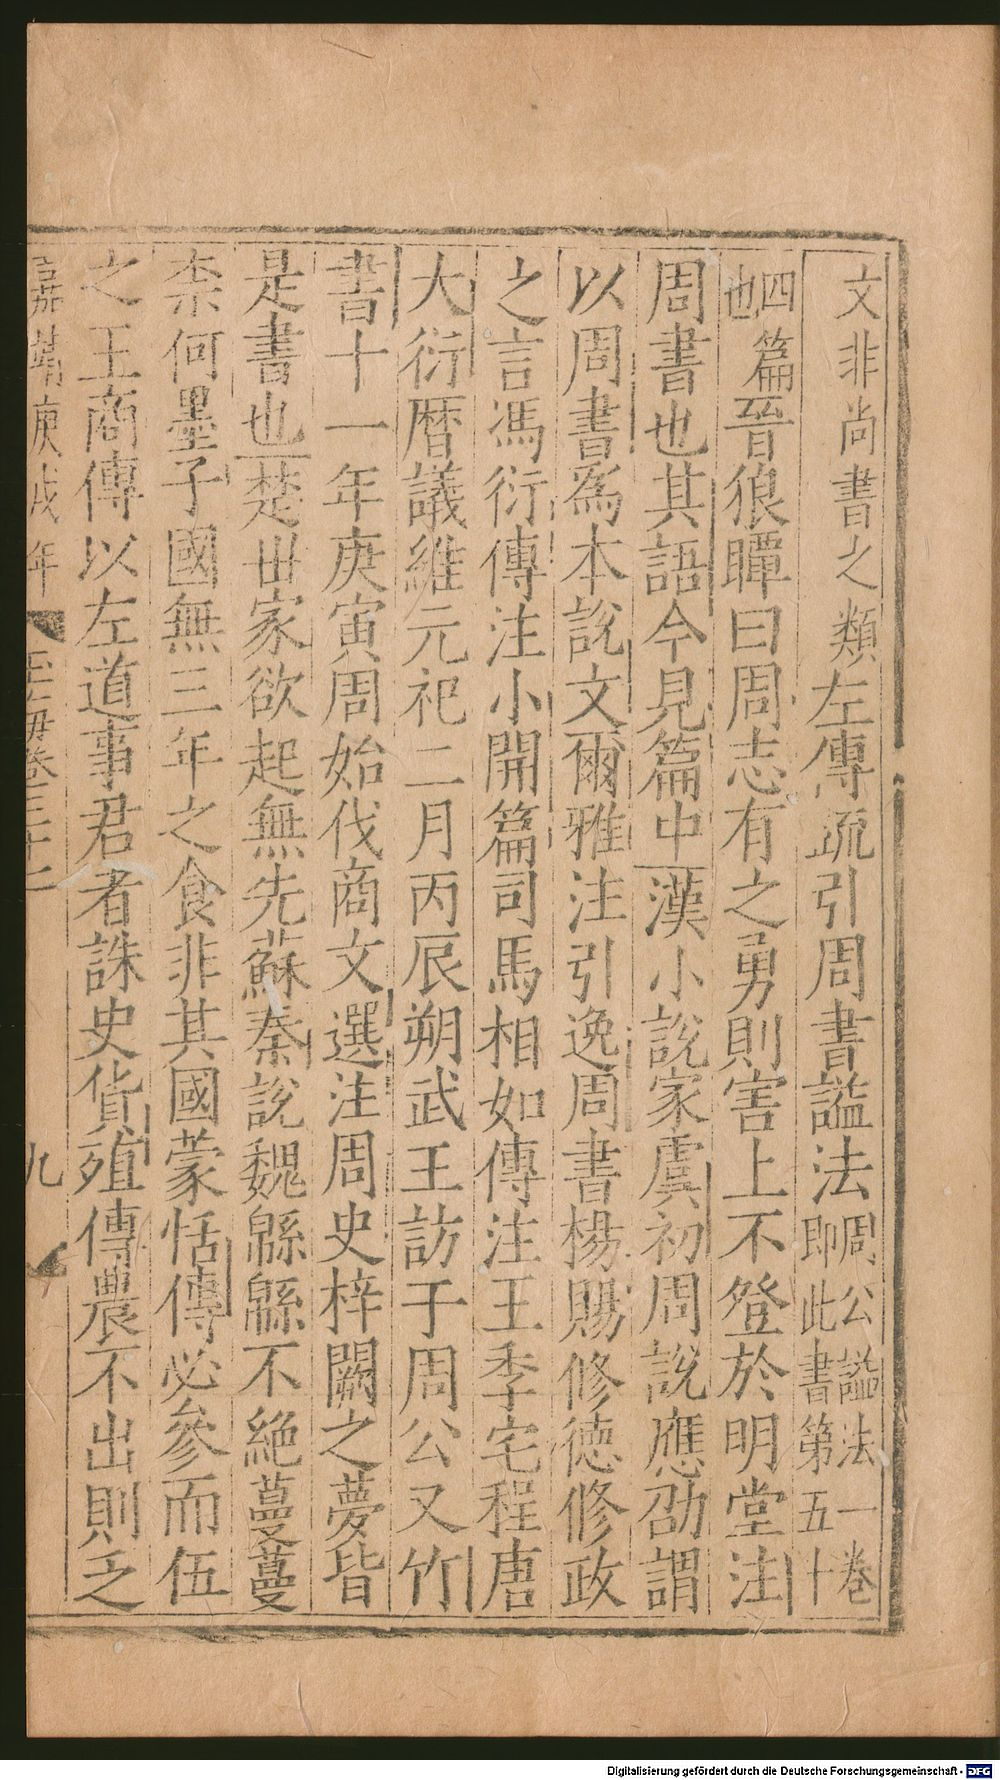 文非尚書之類左傳疏引周書諡法周公諡法一卷即此書第五十
四篇也晉狼瞫曰周志有之勇則害上不登於明堂注
周書也其語今見篇中漢小說家虞初周說應劭謂
以周書爲本說文爾雅注引逸周書楊賜修德修政
之言馮衍傳注小開篇司馬相如傳注王季宅程唐
大衍曆議維元祀二月丙辰朔武王訪于周公又竹
書十一年庚寅周始伐商文選注周史梓闕之夢皆
是書也楚世家欲起無先蘇秦說魏緜緜不絕蔓蔓
柰何墨子國無三年之食非其國蒙恬傳必參而伍
之王商傳以左道事君者誅史貨殖傳農不出則乏
嘉靖庚戌年
玉海卷三十七
九
Digitalisierung gefördert durch die Deutsche Forschungsgemeinschaft - DFG